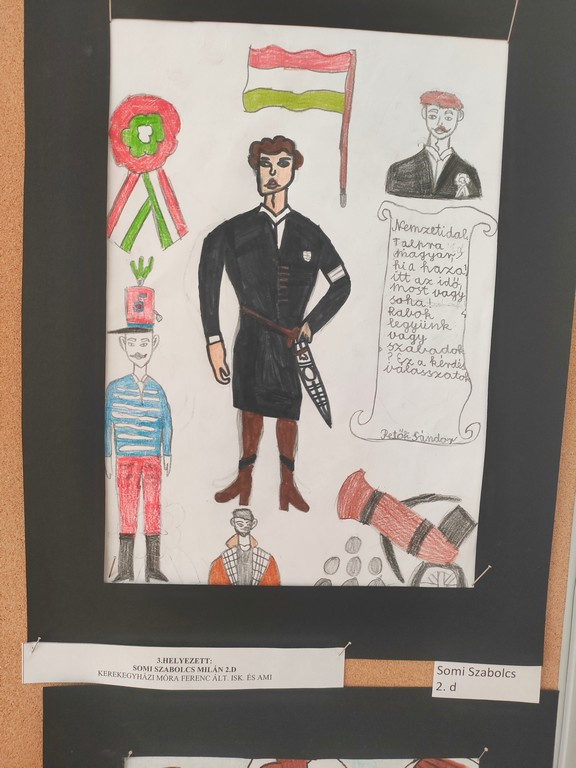 Nemzeti dal
Talpra
magyar,
hí a haza!
itt az idő,
most vagy
soha!
Rabok
legyünk
vagy
szabadok
? Ez a kérdés
válasszatok
Petőfi Sándor
3.HELYEZETT:
SOMI SZABOLCS MILÁN 2.D
KEREKEGYHÁZI MÓRA FERENC ÁLT. ISK. ÉS AMI
Somi Szabolcs
2. d